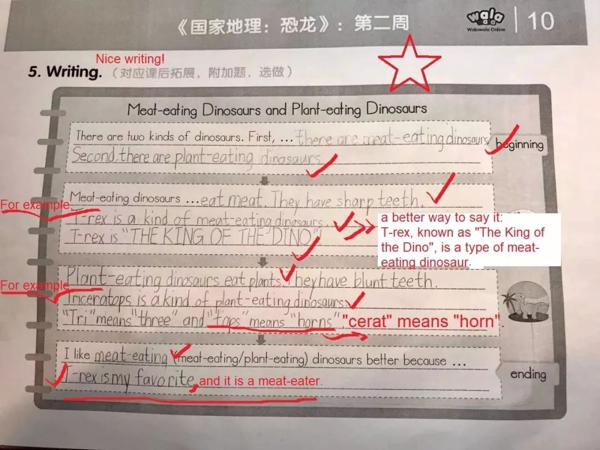 《国家地理：恐龙》：第二周
wala
Walawala Online
10
Nice writing!
5. Writing.（对应课后拓展，附加题，选做）
Meat-eating Dinosaurs and Plant-eating Dinosaurs
There are two kinds of dinosaurs. First, ... there are meat-eating dinosaurs
Second, there are plant-eating dinosaurs.
beginning
Meat-eating dinosaurs ... eat meat. They have sharp teeth.
For example
T-rex is a kind of meat-eating dinosaurs.
T-rex is "THE KING OF THE DINO".
a better way to say it:
T-rex, known as "The King of
the Dino", is a type of meat-
eating dinosaur.
Plant-eating dinosaurs eat plants. They have blunt teeth.
For example
is a kind of plant-eating dinosaurs.
"Tri" means "three" and "tops" means "horns". "cerat" means "horn".
I like meat-eating (meat-eating/plant-eating) dinosaurs better because ...
T-rex is my favorite, and it is a meat-eater.
ending